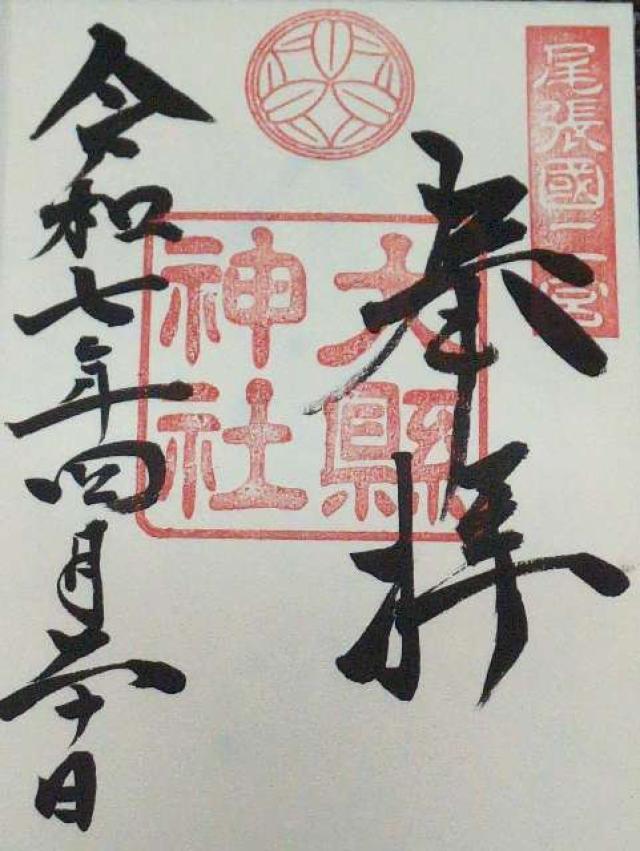 尾張國二宮
奉拝
大縣
神社
令和七年四月二十日